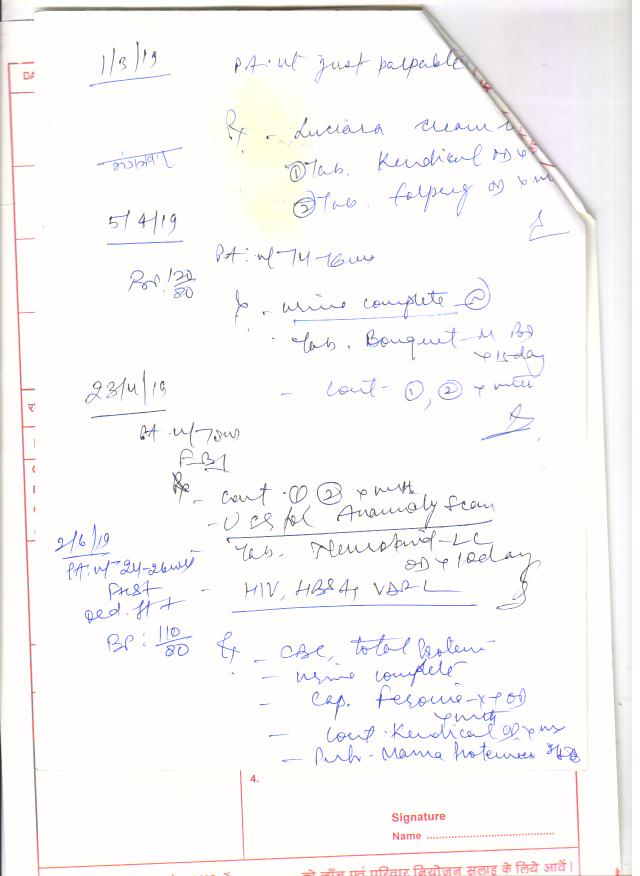 1/3/19
PA: ut just palpable
Rx - Luciara cream
① Tab. Kendical OD x
② Tab. Folpreg OD x
5/4/19
PA: ut 14-16 wks
BP: 120/80
Rx - urine complete
Tab. Bouquet-M BD
x 15 day
- cont- ①, ② x mth
23/4/19
PA ut
Rx - cont ① ② x mth
- USG for Anomaly Scan
Tab. Neurokind-LC
OD x 10 day
- HIV, HBSAg, VDRL
2/6/19
PA: ut 24-26 wks
FHS+
Ped. ft +
BP: 110/80
Rx - CBC, total protein
- urine complete
- Cap. Feronia-XT OD
x mth
- Cont. Kendical OD x
- Mama
DA
4.
Signature
Name
को जाँच एवं परिवार नियोजन सलाह के लिये आवें।